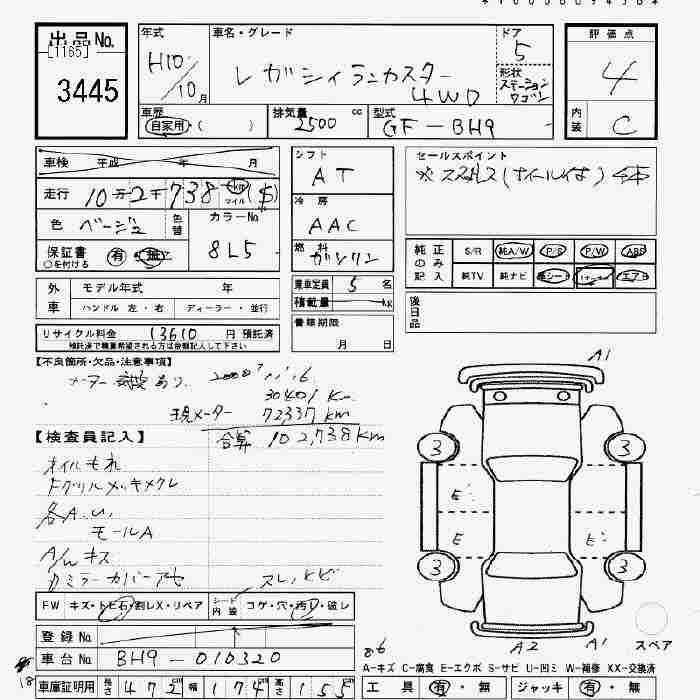 出品No.
[1165]
3445
年式
H10/10月
車名・グレード
レガシィランカスター
4WD
ドア
5
形状
ステーション
ワゴン
評価点
4
内装
C
車歴
自家用・( )
排気量
2500 cc
型式
GF-BH9
車検 平成 年 月
走行 10万2千738 km マイル ($)
色 ベージュ
色替
カラーNo
8L5
保証書 有・無
○を付ける
シフト
AT
冷房
AAC
燃料
ガソリン
セールスポイント
純正のみ記入
S/R 純A/W P/S P/W ABS
純TV 純ナビ 革シート エアB
外車
モデル年式 年
ハンドル 左・右 ディーラー・並行
乗車定員 5 名
積載量 kg
書類期限
月 日
後日品
リサイクル料金 13610 円 預託済
預託済で精算希望される方は金額記入して下さい
【不良箇所・欠品・注意事項】
メーター交換あり
30401 Km
現メーター 72337 km
合算 102,738 km
【検査員記入】
オイルもれ
Fグリルメッキメクレ
各A.U.
モールA
A/Wキズ
スレ.トビ
FW キズ・トビ石・割レX・リペア
シート内装 コゲ・穴・汚レ・破レ
登録No
車台No BH9-010320
車庫証明用 長さ 472 cm 幅 174 cm 高さ 155 cm
A1
3 3
E E
E
3 3
A2 A1
スペア
A-キズ C-腐食 E-エクボ S-サビ U-凹ミ W-補修 XX-交換済
工具 有・無 ジャッキ 有・無